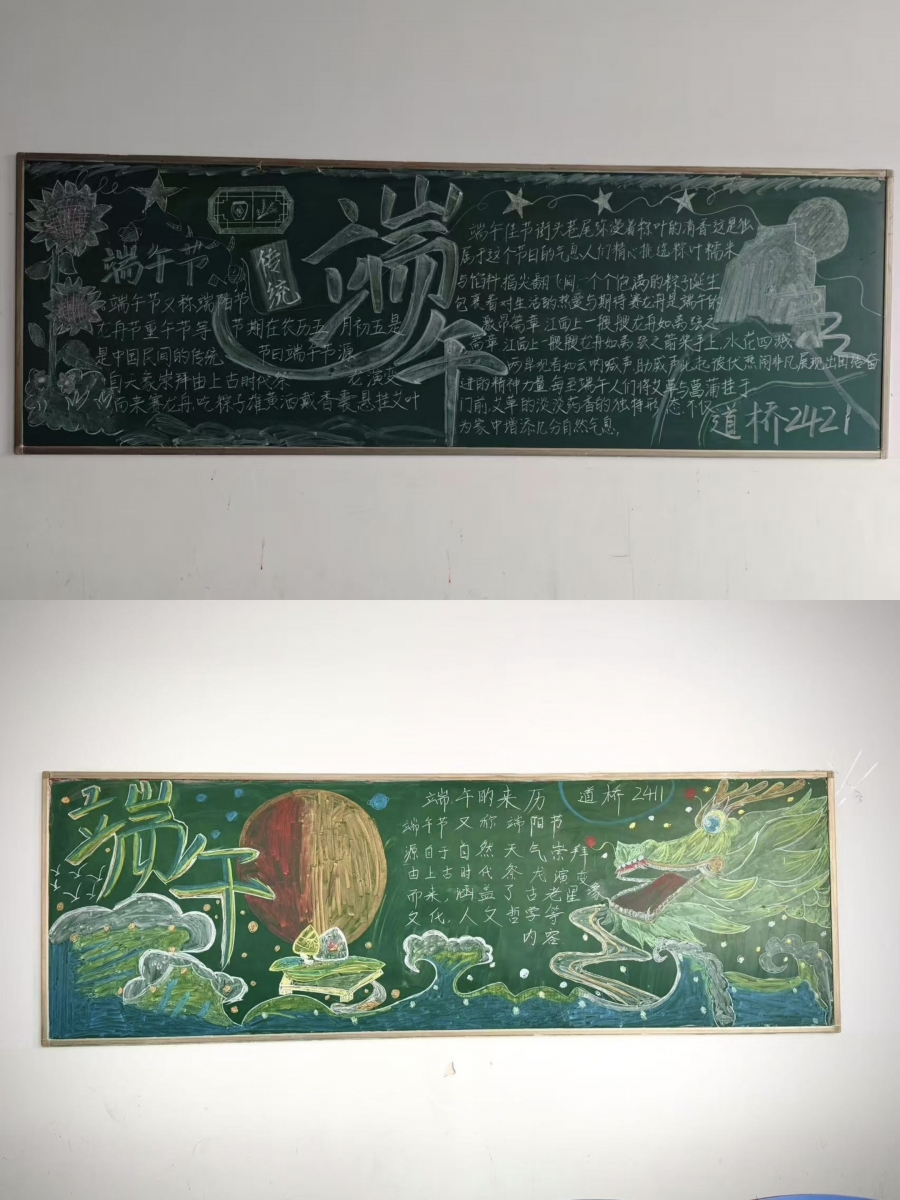 端午节
传统
端午
端午节又称端阳节
龙舟节重午节等 节期在农历五月初五是
是中国民间的传统 节日端午节源
自天象崇拜由上古时代祭 龙演变
而来赛龙舟吃粽子雄黄酒戴香囊悬挂艾叶
端午佳节街头巷尾弥漫着粽叶的清香这是独
属于这个节日的气息人们精心挑选粽叶糯米
与馅料指尖翻飞间一个个饱满的粽子诞生
包裹着对生活的热爱与期待赛龙舟是端午的
激昂篇章江面上一艘艘龙舟如离弦之
篇章江面上一艘艘龙舟如离弦之箭桨手上水花四溅
两岸观者如云呐喊声助威声此起彼伏热闹非凡展现出团结奋
进的精神力量每至端午人们将艾草与菖蒲挂于
门前艾草的淡淡药香的独特形态不仅
为家中增添几分自然气息。
道桥2421
端午
端午的来历 道桥2411
端午节又称端阳节
源自于自然天气崇拜
由上古时代祭龙演变
而来,涵盖了古老星象
文化,人文哲学等
内容